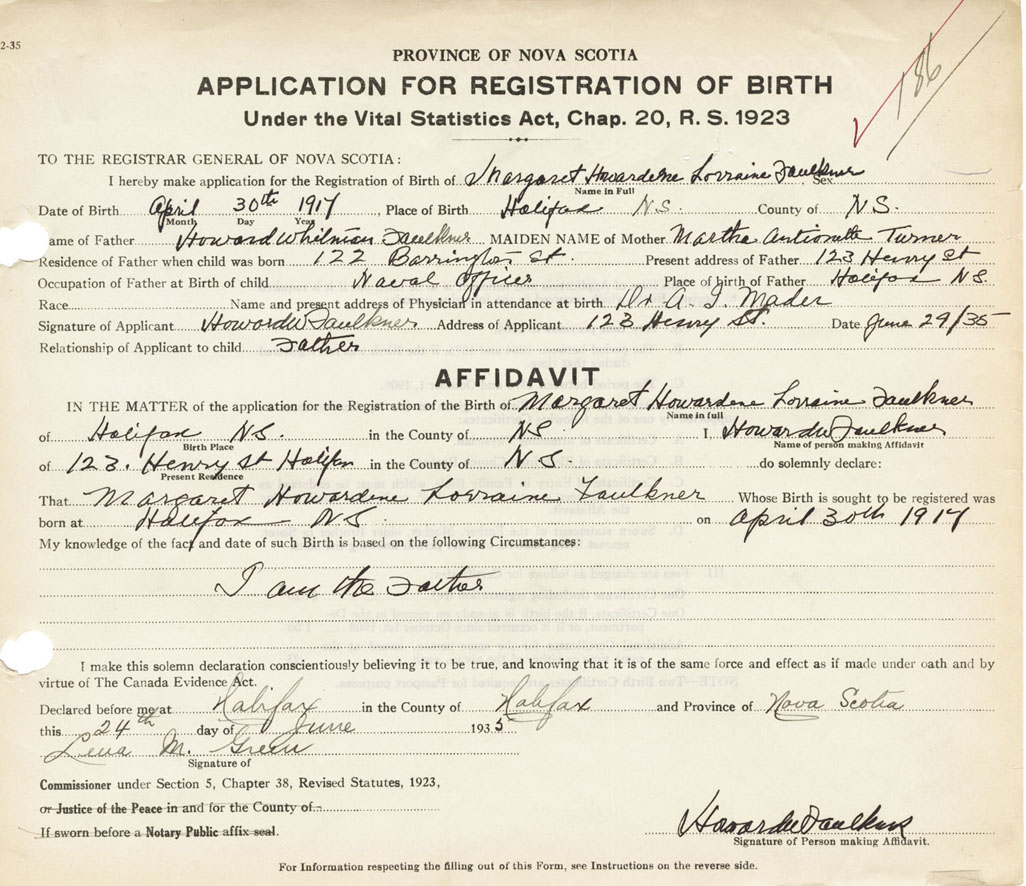 2-35
186
PROVINCE OF NOVA SCOTIA
APPLICATION FOR REGISTRATION OF BIRTH
Under the Vital Statistics Act, Chap. 20, R. S. 1923
TO THE REGISTRAR GENERAL OF NOVA SCOTIA:
I hereby make application for the Registration of Birth of Margaret Howardene Lorraine Faulkner Sex
Name in Full
Date of Birth April 30th 1917, Place of Birth Halifax N.S. County of N.S.
Month Day Year
ame of Father Howard Whitman Faulkner MAIDEN NAME of Mother Martha Antionette Turner
Residence of Father when child was born 122 Barrington St. Present address of Father 123 Henry St
Occupation of Father at Birth of child Naval Officer Place of birth of Father Halifax N.S.
Race Name and present address of Physician in attendance at birth Dr A. J. Mader
Signature of Applicant Howard W Faulkner Address of Applicant 123 Henry St. Date June 29/35
Relationship of Applicant to child Father
AFFIDAVIT
IN THE MATTER of the application for the Registration of the Birth of Margaret Howardene Lorraine Faulkner
Name in full
of Halifax N.S. in the County of N.S. I, Howard W Faulkner
Birth Place Name of person making Affidavit
of 123. Henry St Halifax in the County of N.S. do solemnly declare:
Present Residence
That Margaret Howardene Lorraine Faulkner Whose Birth is sought to be registered was
born at Halifax N.S. on April 30th 1917
My knowledge of the fact and date of such Birth is based on the following Circumstances:
I am the Father
I make this solemn declaration conscientiously believing it to be true, and knowing that it is of the same force and effect as if made under oath and by
virtue of The Canada Evidence Act.
Declared before me at Halifax in the County of Halifax and Province of Nova Scotia
this 24th day of June 1935
Lena M. Green
Signature of
Commissioner under Section 5, Chapter 38, Revised Statutes, 1923,
or Justice of the Peace in and for the County of
If sworn before a Notary Public affix seal.
Howard W Faulkner
Signature of Person making Affidavit.
For Information respecting the filling out of this Form, see Instructions on the reverse side.